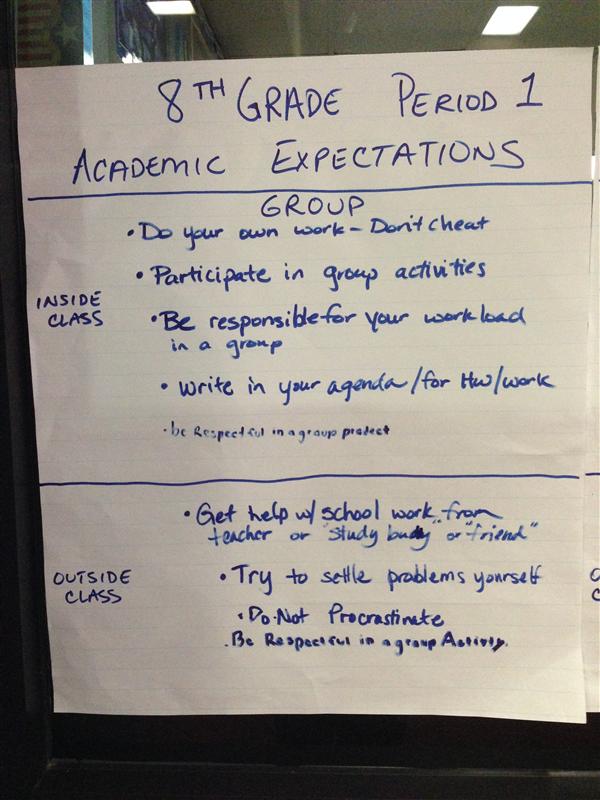 8TH GRADE PERIOD 1
ACADEMIC EXPECTATIONS
GROUP
INSIDE
CLASS
• Do your own work – Don't cheat
• Participate in group activities
• Be responsible for your workload
in a group
• Write in your agenda/for HW/work
• be Respectful in a group
OUTSIDE
CLASS
• Get help w/ school work from
teacher or "study buddy" or "friend"
• Try to settle problems yourself
• Do Not Procrastinate
• Be Respectful in a group Activity.